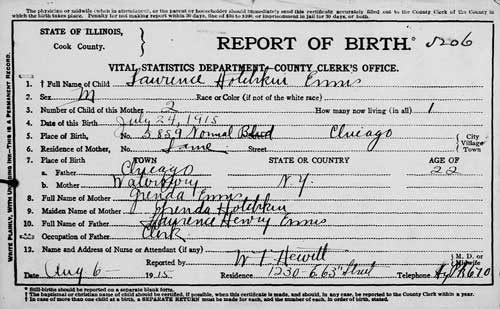 The physician or midwife (when in attendance), or the parent or householder should immediately send this certificate accurately filled out to the County Clerk of the County in
which birth takes place. Penalty for not making report within 30 days, fine of $10 to $100, or imprisonment in jail for 30 days, or both.
STATE OF ILLINOIS,
Cook County.
REPORT OF BIRTH. 5206
VITAL STATISTICS DEPARTMENT—COUNTY CLERK'S OFFICE.
1. † Full Name of Child Lawrence Hotchkin Ennis
2. Sex M Race or Color (if not of the white race)
3. Number of Child of this Mother 2 How many now living (in all) 1
4. Date of this Birth July 24, 1915
5. Place of Birth, No. 5859 Normal Blvd Chicago City Village Town
6. Residence of Mother, No. Same Street
7. Place of Birth TOWN STATE OR COUNTRY AGE OF
a. Father Chicago 22
b. Mother N.Y.
8. Full Name of Mother Ennis
9. Maiden Name of Mother Hotchkin
10. Full Name of Father Lawrence Henry Ennis
Occupation of Father Clerk
12. Name and Address of Nurse or Attendant (if any)
Reported by W T Hewitt M. D. or Midwife
Date Aug 6 1915 Residence 1230 E. 63 Street Telephone
*Still-births should be reported on a separate blank form.
†The baptismal or christian name of child should be certified, if possible, when this certificate is made, and should, in any case, be reported to the County Clerk within a year.
‡In case of more than one child at a birth, a SEPARATE RETURN must be made for each, and the number of each, in order of birth, stated.
WRITE PLAINLY, WITH UNFADING INK—THIS IS A PERMANENT RECORD.